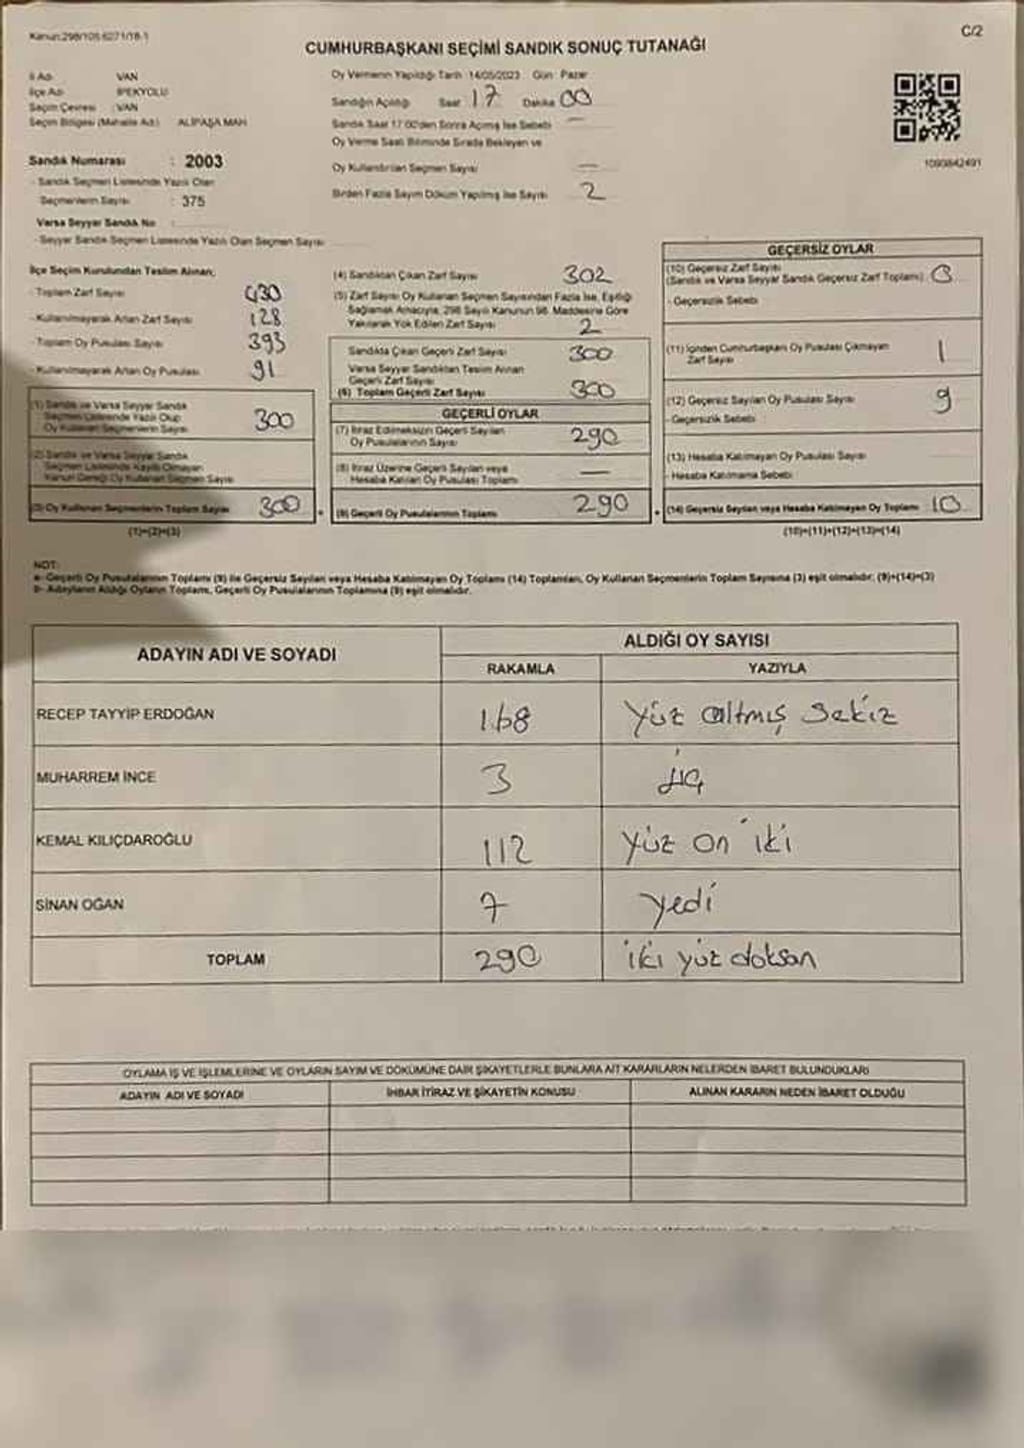 Kanun:298/105 6271/18-1
C/2
CUMHURBAŞKANI SEÇİMİ SANDIK SONUÇ TUTANAĞI
İl Adı VAN
İlçe Adı İPEKYOLU
Seçim Çevresi : VAN
Seçim Bölgesi (Mahalle Adı) ALİPAŞA MAH
Sandık Numarası : 2003
- Sandık Seçmen Listesinde Yazılı Olan
Seçmenlerin Sayısı : 375
Varsa Seyyar Sandık No :
- Seyyar Sandık Seçmen Listesinde Yazılı Olan Seçmen Sayısı
Oy Vermenin Yapıldığı Tarih 14/05/2023 Gün Pazar
Sandığın Açıldığı Saat 17 Dakika 00
Sandık Saat 17:00'den Sonra Açılmış İse Sebebi —
Oy Verme Saati Bitiminde Sırada Bekleyen ve
Oy Kullandırılan Seçmen Sayısı —
Birden Fazla Sayım Döküm Yapılmış İse Sayısı 2
1090842491
İlçe Seçim Kurulundan Teslim Alınan;
- Toplam Zarf Sayısı 430
- Kullanılmayarak Artan Zarf Sayısı 128
- Toplam Oy Pusulası Sayısı 393
- Kullanılmayarak Artan Oy Pusulası 91
(1) Sandık ve Varsa Seyyar Sandık
Seçmen Listesinde Yazılı Olup
Oy Kullanan Seçmenlerin Sayısı 300
(2) Sandık ve Varsa Seyyar Sandık
Seçmen Listesinde Kayıtlı Olmayan
Kanun Gereği Oy Kullanan Seçmen Sayısı
(3) Oy Kullanan Seçmenlerin Toplam Sayısı 300
(1)+(2)=(3)
(4) Sandıktan Çıkan Zarf Sayısı 302
(5) Zarf Sayısı Oy Kullanan Seçmen Sayısından Fazla İse, Eşitliği
Sağlamak Amacıyla, 298 Sayılı Kanunun 98. Maddesine Göre
Yakılarak Yok Edilen Zarf Sayısı 2
Sandıkta Çıkan Geçerli Zarf Sayısı 300
Varsa Seyyar Sandıktan Teslim Alınan
Geçerli Zarf Sayısı
(6) Toplam Geçerli Zarf Sayısı 300
GEÇERLİ OYLAR
(7) İtiraz Edilmeksizin Geçerli Sayılan
Oy Pusulalarının Sayısı 290
(8) İtiraz Üzerine Geçerli Sayılan veya
Hesaba Katılan Oy Pusulası Toplamı —
(9) Geçerli Oy Pusulalarının Toplamı 290
GEÇERSİZ OYLAR
(10) Geçersiz Zarf Sayısı
(Sandık ve Varsa Seyyar Sandık Geçersiz Zarf Toplamı)
- Geçersizlik Sebebi
(11) İçinden Cumhurbaşkanı Oy Pusulası Çıkmayan
Zarf Sayısı 1
(12) Geçersiz Sayılan Oy Pusulası Sayısı 9
- Geçersizlik Sebebi
(13) Hesaba Katılmayan Oy Pusulası Sayısı
- Hesaba Katılmama Sebebi
(14) Geçersiz Sayılan veya Hesaba Katılmayan Oy Toplamı 10
(10)+(11)+(12)+(13)=(14)
NOT:
a- Geçerli Oy Pusulalarının Toplamı (9) ile Geçersiz Sayılan veya Hesaba Katılmayan Oy Toplamı (14) Toplamları, Oy Kullanan Seçmenlerin Toplam Sayısına (3) eşit olmalıdır. (9)+(14)=(3)
b- Adayların Aldığı Oyların Toplamı, Geçerli Oy Pusulalarının Toplamına (9) eşit olmalıdır.
ADAYIN ADI VE SOYADI ALDIĞI OY SAYISI
RAKAMLA YAZIYLA
RECEP TAYYİP ERDOĞAN 168 Yüz altmış sekiz
MUHARREM İNCE 3 üç
KEMAL KILIÇDAROĞLU 112 yüz on iki
SİNAN OĞAN 7 yedi
TOPLAM 290 iki yüz doksan
OYLAMA İŞ VE İŞLEMLERİNE VE OYLARIN SAYIM VE DÖKÜMÜNE DAİR ŞİKAYETLERLE BUNLARA AİT KARARLARIN NELERDEN İBARET BULUNDUKLARI
ADAYIN ADI VE SOYADI İHBAR İTİRAZ VE ŞİKAYETİN KONUSU ALINAN KARARIN NEDEN İBARET OLDUĞU